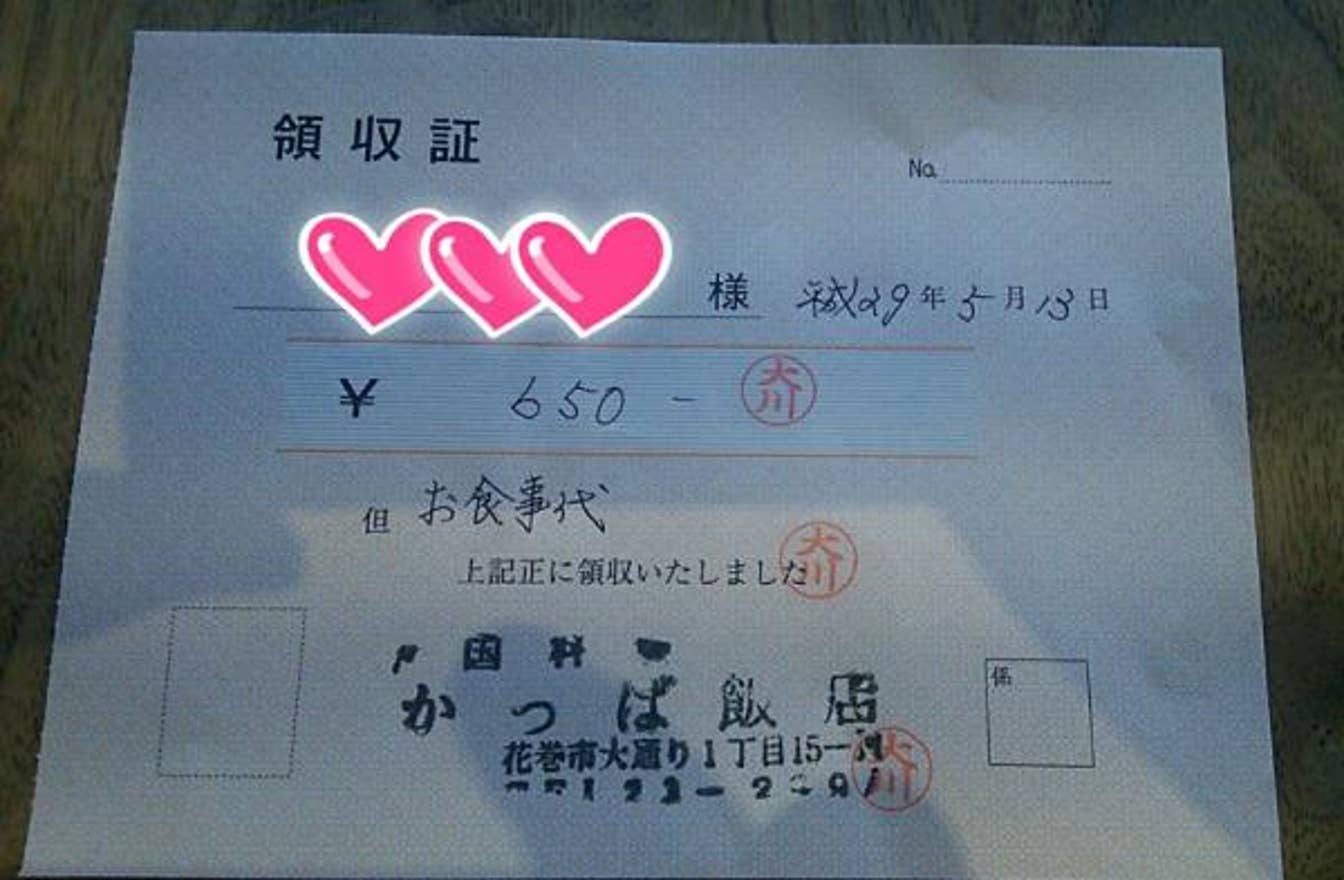 領収証
No.
様 平成29年5月13日
¥ 650- 大川
但 お食事代
上記正に領収いたしました 大川
国料
かっぱ飯店
係
花巻市大通り1丁目15ー
大川